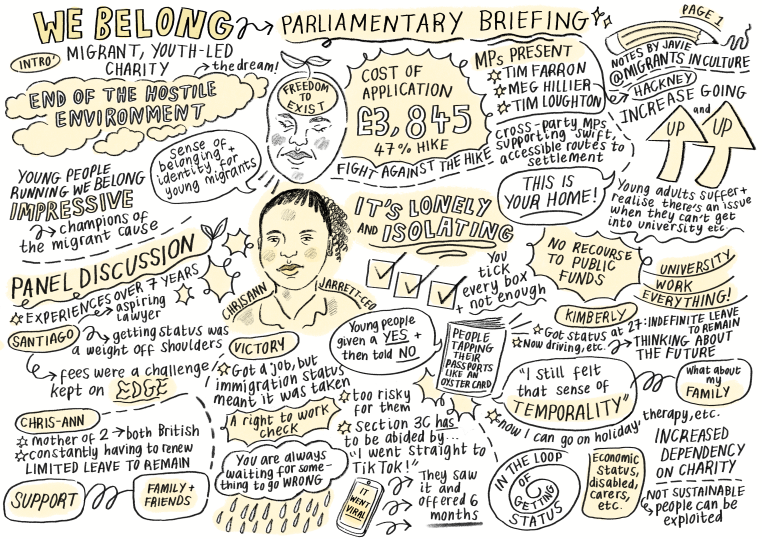 WE BELONG
PARLIAMENTARY BRIEFING
PAGE 1
INTRO
MIGRANT, YOUTH-LED
CHARITY
the dream!
END OF THE HOSTILE
ENVIRONMENT
FREEDOM
TO
EXIST
COST OF
APPLICATION
£3,845
47% HIKE
FIGHT AGAINST THE HIKE
MPs PRESENT
TIM FARRON
MEG HILLIER
TIM LOUGHTON
cross-party MPs
supporting swift,
accessible routes to
settlement
NOTES BY JAVIE
@MIGRANTS IN CULTURE
HACKNEY
INCREASE GOING
UP
and
UP
sense of
belonging +
identity for
young migrants
YOUNG PEOPLE
RUNNING WE BELONG
IMPRESSIVE
champions of
the migrant cause
THIS IS
YOUR HOME!
Young adults suffer +
realise there's an issue
when they can't get
into university etc.
PANEL DISCUSSION
EXPERIENCES OVER 7 YEARS
aspiring
lawyer
SANTIAGO
getting status was
a weight off shoulders
fees were a challenge
kept on EDGE
CHRISANN
JARRETT-CEO
IT'S LONELY
AND ISOLATING
You
tick
every box
+ not enough
NO RECOURSE
TO PUBLIC
FUNDS
UNIVERSITY
WORK
EVERYTHING!
KIMBERLY
Got status at 27: INDEFINITE LEAVE
TO REMAIN
Now driving, etc.
THINKING ABOUT
THE FUTURE
Young people
given a YES +
then told NO
PEOPLE
TAPPING
THEIR
PASSPORTS
LIKE AN
OYSTER CARD
"I still felt
that sense of
TEMPORALITY"
What about
my
FAMILY
now I can go on holiday, therapy, etc.
VICTORY
Got a job, but
immigration status
meant it was taken
A right to work
check
You are always
waiting for some-
thing to go WRONG
too risky
for them
Section 3C has
to be abided by...
"I went straight to
TikTok!"
IT
WENT
VIRAL
They saw
it and
offered 6
months
CHRIS-ANN
mother of 2
both British
constantly having to renew
LIMITED LEAVE TO REMAIN
SUPPORT
FAMILY +
FRIENDS
IN THE LOOP
OF
GETTING
STATUS
Economic
status,
disabled,
carers,
etc.
INCREASED
DEPENDENCY
ON CHARITY
NOT SUSTAINABLE
people can be
exploited